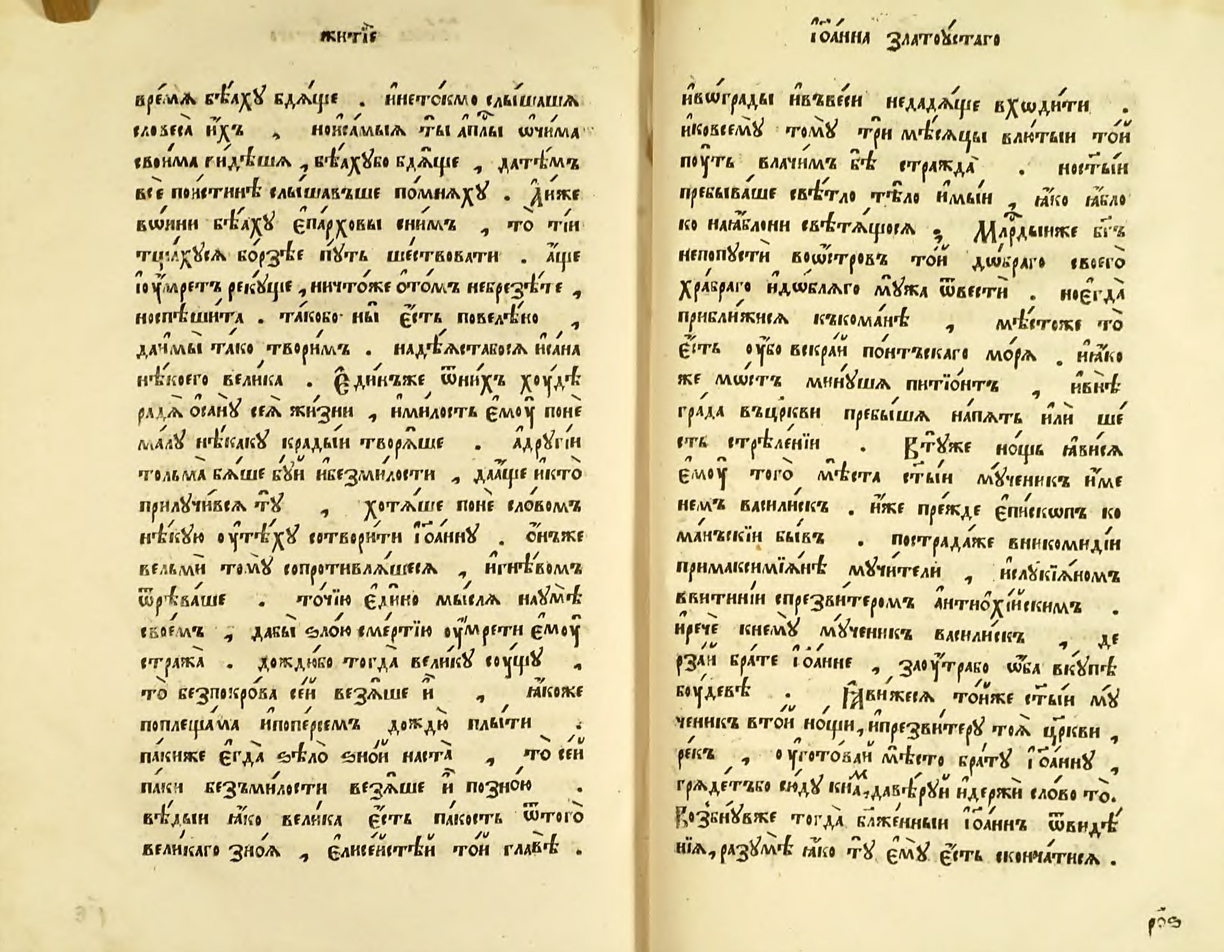 житїе
времѧ бѣ́ахꙋ бдѧ́ще . и҆нето́кмо слы́шашѧ
словеса̀ и҆́хъ , нои҆са́мыѧ ты̀ а҆п҃лы ѡ҆чи́ма
свои́ма ви́дѣшѧ , бѣ́ахꙋбо бдѧ́ще , датѣ́мъ
всѐ пои́стинѣ слы́шавъше по́мнѧхꙋ . Ди́же
во́ини бѣ́ахꙋ є҆па́рховы сни́мъ , то̀ ті́и
тща́хꙋсѧ бо́рзѣе пꙋть ше́ствовати . а҆́ще
і҆оу҆́мретъ рекꙋ́ще , ничто́же ѻ҆то́мъ небрезѣ́те ,
носпѣшита . та́кобо ны̀ є҆́сть повелѣ́но ,
даи҆мы̀ та́ко твори́мъ . надѣ́ѧстабосѧ и҆са́на
нѣ́коего вели́ка . Є҆ди́нъже ѿни́хъ хоу́дѣ
радѧ̀ ѻ҆са́нꙋ сеѧ̀ жи́зни , и҆ми́лость є҆моу̀ понѐ
ма́лꙋ нѣ́какꙋ крады́и творѧ́ше . а҆дрꙋгі́и
тольма̀ бѧ́ше бꙋ́й и҆безми́лости , даа҆́ще и҆кто̀
прилꙋчи́всѧ тꙋ̀ , хотѧ́ше понѐ сло́вомъ
нѣ́кꙋю оу҆тѣ́хꙋ сотвори́ти і҆ѡа҆́ннꙋ . ѻ҆́нъже
вельмѝ томꙋ̀ сопротивлѧ́шесѧ , и҆гнѣ́вомъ
ѿрѣва́ше . то́чїю є҆ди́но мы́слѧ наꙋмѣ̀
свое́мъ , дабы̀ ѕло́ю сме́ртїю оу҆мре́ти є҆моу̀
стража̀ . дождю́бо тогда̀ вели́кꙋ соу́щꙋ ,
то̀ безпокро́ва се́й везѧ́ше и҆̀ , ꙗ҆́коже
поплеща́ма и҆попе́рсемъ дождю̀ плы́ти .
па́киже є҆гда̀ ѕѣло̀ зно́й наста̀ , то̀ се́й
па́ки безъми́лости везѧ́ше и҆̀ позно́ю .
вѣ́дыи ꙗ҆́ко вели́ка є҆́сть па́кость ѿтого̀
вели́каго зно́ѧ , є҆лисе́йстѣи то́й главѣ̀ .
і҆ѡа҆́нна златоу́стаго
и҆вогра́ды и҆въве́си недадѧ́ще вхѡди́ти .
и҆ковсемꙋ̀ томꙋ̀ трѝ мѣ́сѧцы влю́тыи то́й
поу́ть влачи́мъ бѣ̀ стражда̀ . ност҃ы́и
пребыва́ше свѣ́тло тѣ́ло и҆мы́и , ꙗ҆́ко ꙗ҆́бло
ко наꙗ҆́блони свѣтѧ́щосѧ . Млⷭ҇рдыиже бг҃ъ
непопꙋстѝ воѡ҆́стровъ то́й до́браго своего̀
хра́браго и҆до́блѧго мꙋ́жа ѿвестѝ . ноє҆гда̀
прибли́жисѧ къкома́нѣ , мѣ́стоже то̀
є҆́сть оу҆́бо вскра́й по́нтъскаго мо́рѧ . и҆ꙗ҆́ко
же мо́стъ минꙋ́шѧ питїо́нтъ , и҆внѣ̀
гра́да въцр҃кви пребы́шѧ напѧ́ть и҆лѝ ше
сть стрѣле́нїи . Втꙋ́же но́щь ꙗ҆ви́сѧ
є҆моу̀ того̀ мѣ́ста ст҃ы́и мꙋ́ченикъ и҆́ме
немъ васили́скъ . и҆́же пре́жде є҆пи́скопъ ко
ма́ньскїи бы́въ . пострада́же вникомиди́и
примаксимїѧ́нѣ мꙋчи́тели , и҆слꙋкїѧ́номъ
ввитині́и спрезви́теромъ а҆нтиохі́йскимъ .
и҆речѐ кнемꙋ̀ мꙋ́ченикъ васили́скъ , де
рза́й бра́те і҆ѡа҆́нне , заоу́трабо ѡ҆́ба вкꙋ́пѣ
боу́девѣ . Ꙗ҆ви́жесѧ то́йже ст҃ы́и мꙋ
ченикъ вто́й но́щи, и҆презви́терꙋ тоѧ̀ цр҃кви ,
ре́къ , оу҆гото́вай мѣ́сто бра́тꙋ і҆ѡа҆́ннꙋ ,
грѧде́тъбо сю́дꙋ кна́мъ, давѣ́рꙋй и҆держѝ сло́во то̀.
Возбнꙋ́вже тогда̀ бл҃же́нныи і҆ѡа҆́ннъ ѿвидѣ́
нїѧ, разꙋмѣ̀ ꙗ҆́ко тꙋ̀ є҆мꙋ̀ є҆́сть сконча́тисѧ .
ро҃ѕ